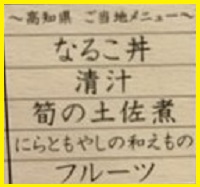 ～高知県 ご当地メニュー～
なるこ丼
清汁
筍の土佐煮
にらともやしの和えもの
フルーツ